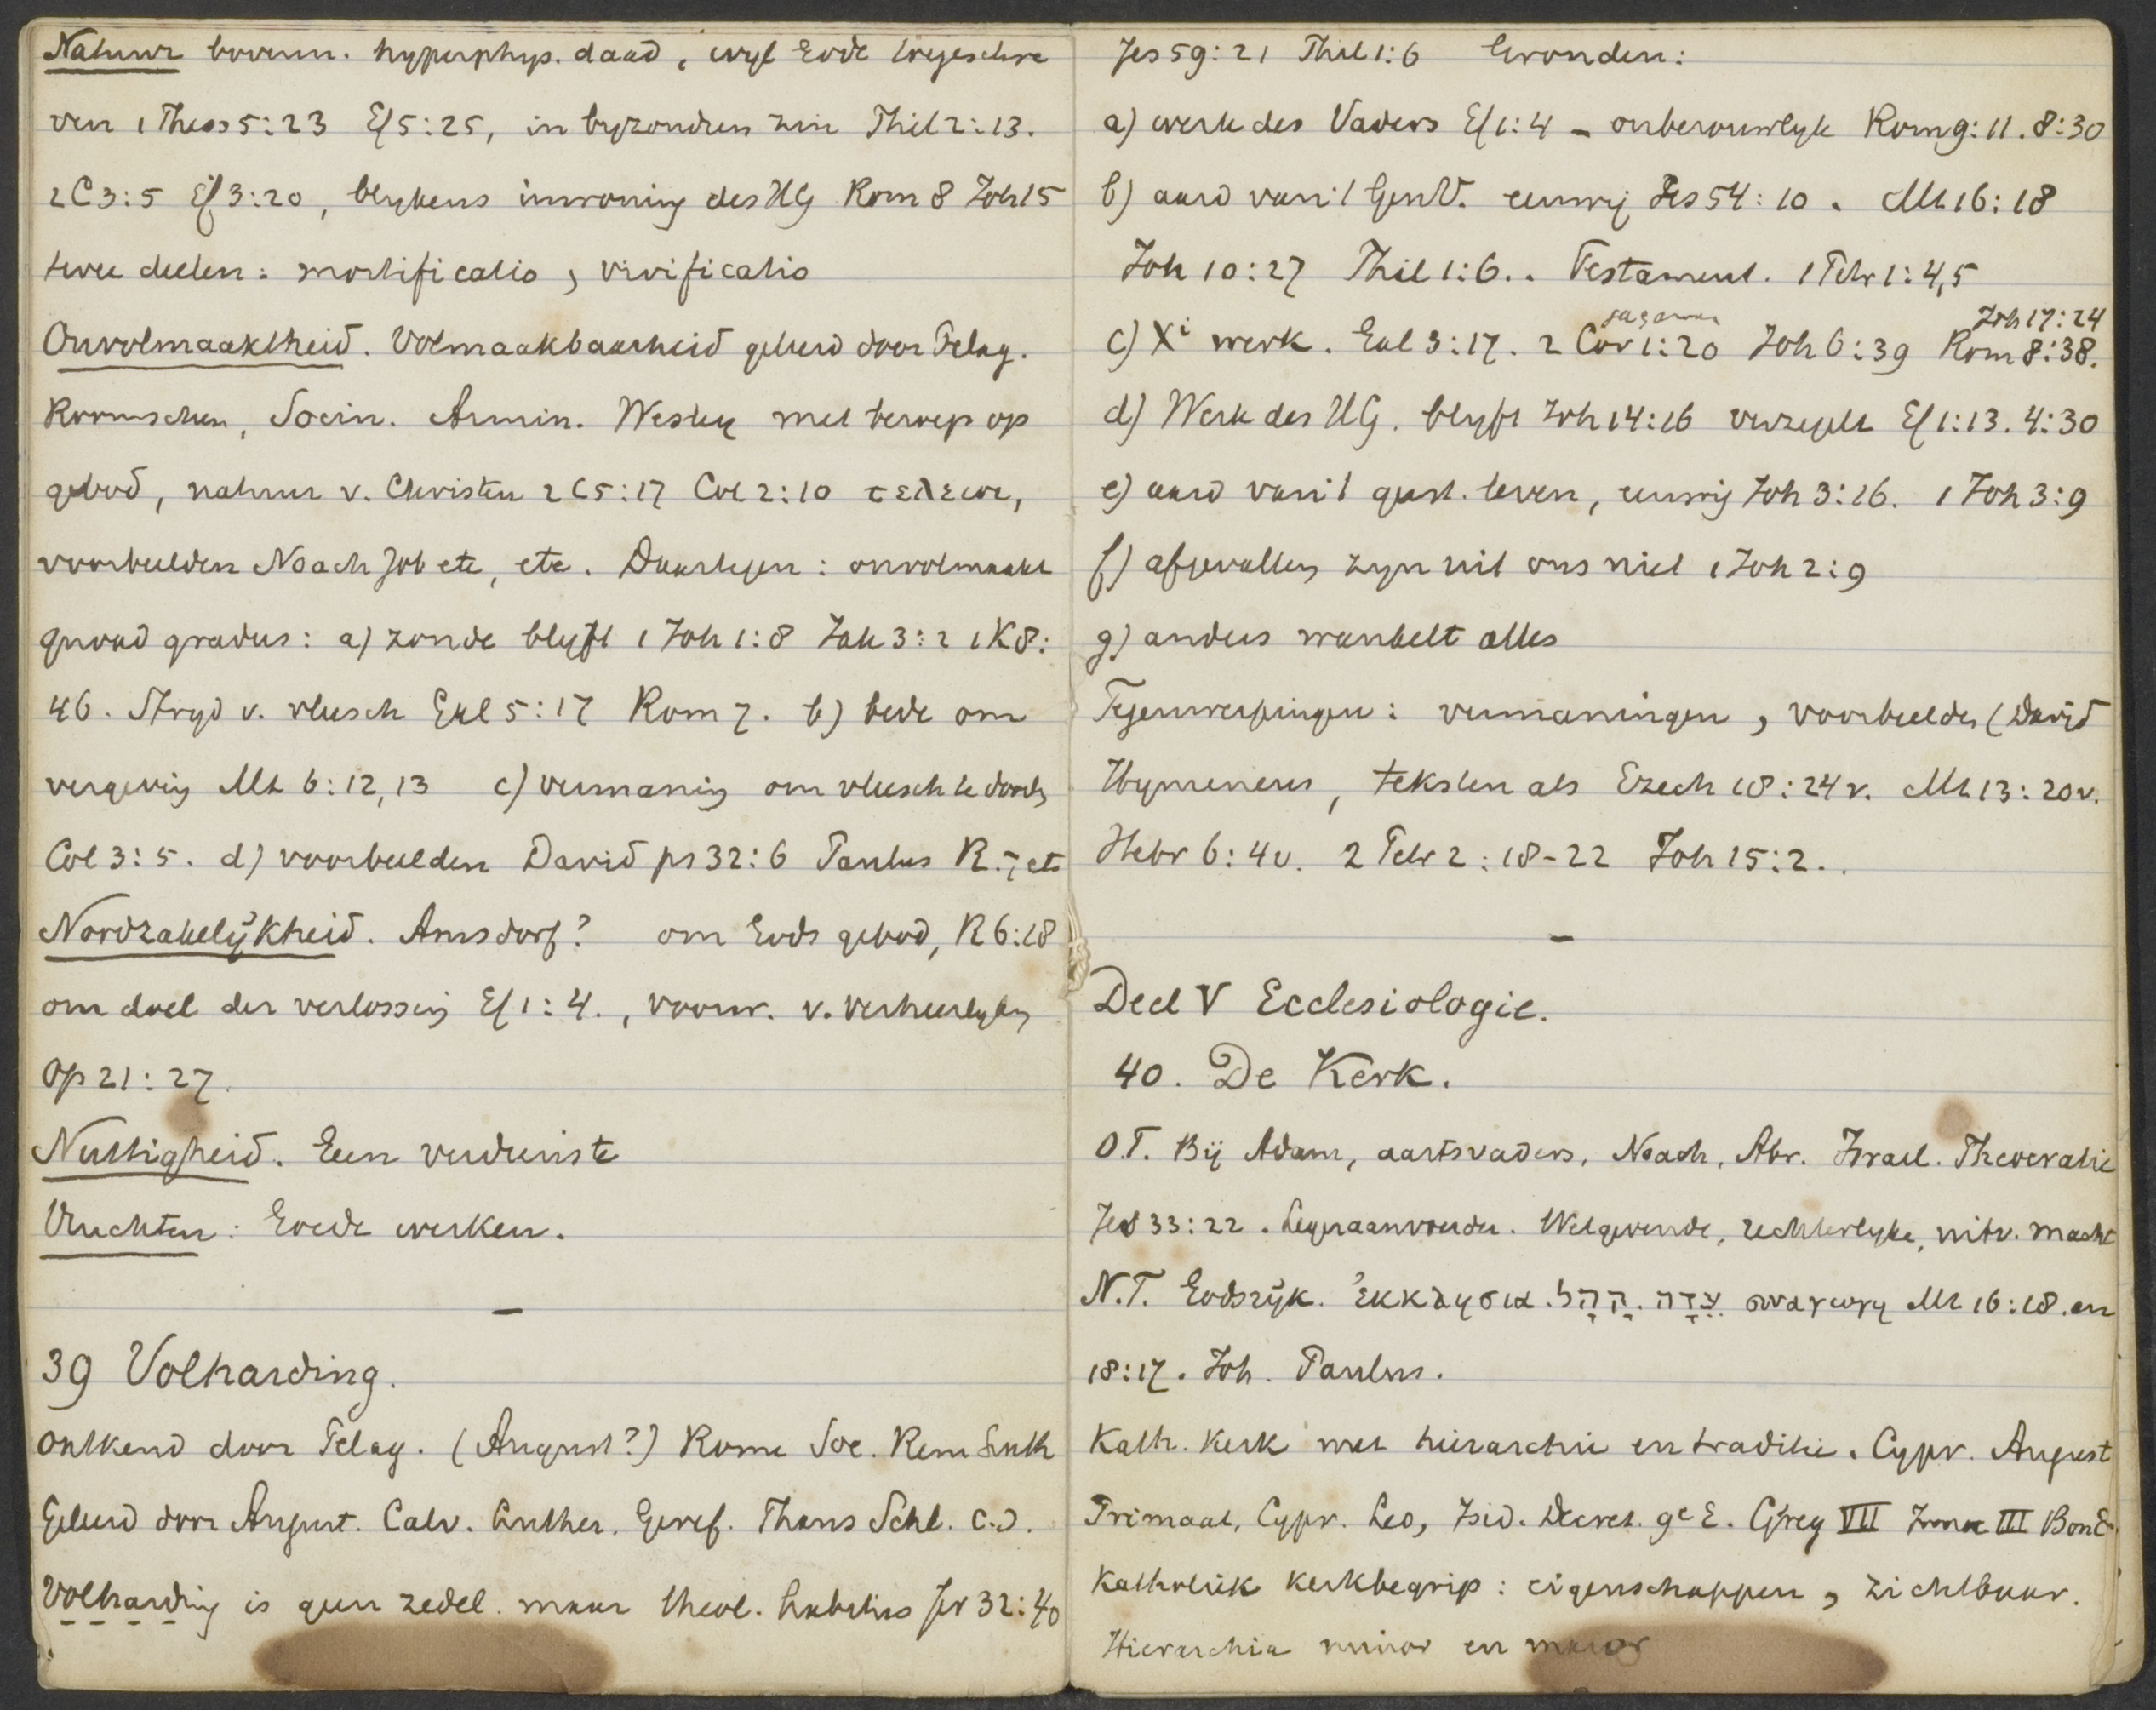 Natuur bovenn. hyperphys. daad, wijl Gode toegeschre
ven 1 Thess 5:23 Ef 5:25, in byzonderen zin Phil 2:13.
2 C 3:5 Ef 3:20, blykens inwoning des HG Rom 8 Joh 15
twee deelen: mortificatio, vivificatio
Onvolmaaktheid. Volmaakbaarheid geleerd door Pelag.
Roomschen, Socin. Armin. Wesley met beroep op
gebod, natuur v. Christen 2 C 5:17 Col 2:10 τελειοι,
voorbeelden Noach Job etc, etc. Daartegen: onvolmaakt
quoad gradus: a) zonde blyft 1 Joh 1:8 Jak 3:2 1 K 8:
46. Stryd v. vleesch Gal 5:17 Rom 7. b) bede om
vergeving Mt 6:12,13 c) vermaning om vleesch te dooden
Col 3:5. d) voorbeelden David ps 32:6 Paulus R. 7 etc
Noodzakelijkheid. Amsdorf? om Gods gebod, R 6:18
om doel der verlossing Ef 1:4., voorw. v. verheerlyking
Op 21:27.
Nuttigheid. Geen verdienste
Vruchten: Goede werken.
–
39 Volharding.
Ontkend door Pelag. (August?) Rome Soc. Rem Luth
Geleerd door August. Calv. Luther. Geref. Thans Schl. e.d.
Volharding is geen zedel. maar theol. habitus Jer 32:40
Jes 59:21 Phil 1:6 Gronden:
a) werk des Vaders Ef 1:4 – onberouwlyk Rom 9:11. 8:30
b) aard van 't GenV. eeuwig Jes 54:10. Mt 16:18
Joh 10:27 Phil 1:6.. Testament. 1 Petr 1:4,5
Joh 17:24
c) Xi werk. Gal 3:17. 2 Cor 1:20 Joh 6:39 Rom 8:38.
d) Werk des HG. blyft Joh 14:16 verzegelt Ef 1:13. 4:30
e) aard van 't geest. leven, eeuwig Joh 3:16. 1 Joh 3:9
f) afgevallen zyn uit ons niet 1 Joh 2:9
g) anders wankelt alles
Tegenwerpingen: vermaningen, voorbeelden (David
Hymeneus, teksten als Ezech 18:24v. Mt 13:20v.
Hebr 6:4v. 2 Petr 2:18-22 Joh 15:2..
–
Deel V Ecclesiologie.
40. De Kerk.
O.T. Bij Adam, aartsvaders, Noach, Abr. Israel. Theocratie
Jes 33:22. Legeraanvoerder. Wetgevende, rechterlyke, uitv. macht
N.T. Godsrijk. ἐκκλησια. קָהָל. עֵדָה συναγωγη Mt 16:18. en
18:17. Joh. Paulus.
Kath. Kerk met hierarchie en traditie. Cypr. August
Primaat, Cypr. Leo, Isid. Decret. 9e E. Greg VII Inno III Bon 8
Katholiek kerkbegrip: eigenschappen, zichtbaar.
Hierarchia minor en maior